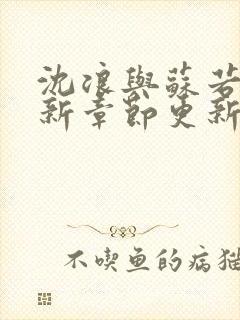 沈浪與蘇若
新章節更新
不喫鱼的病猫